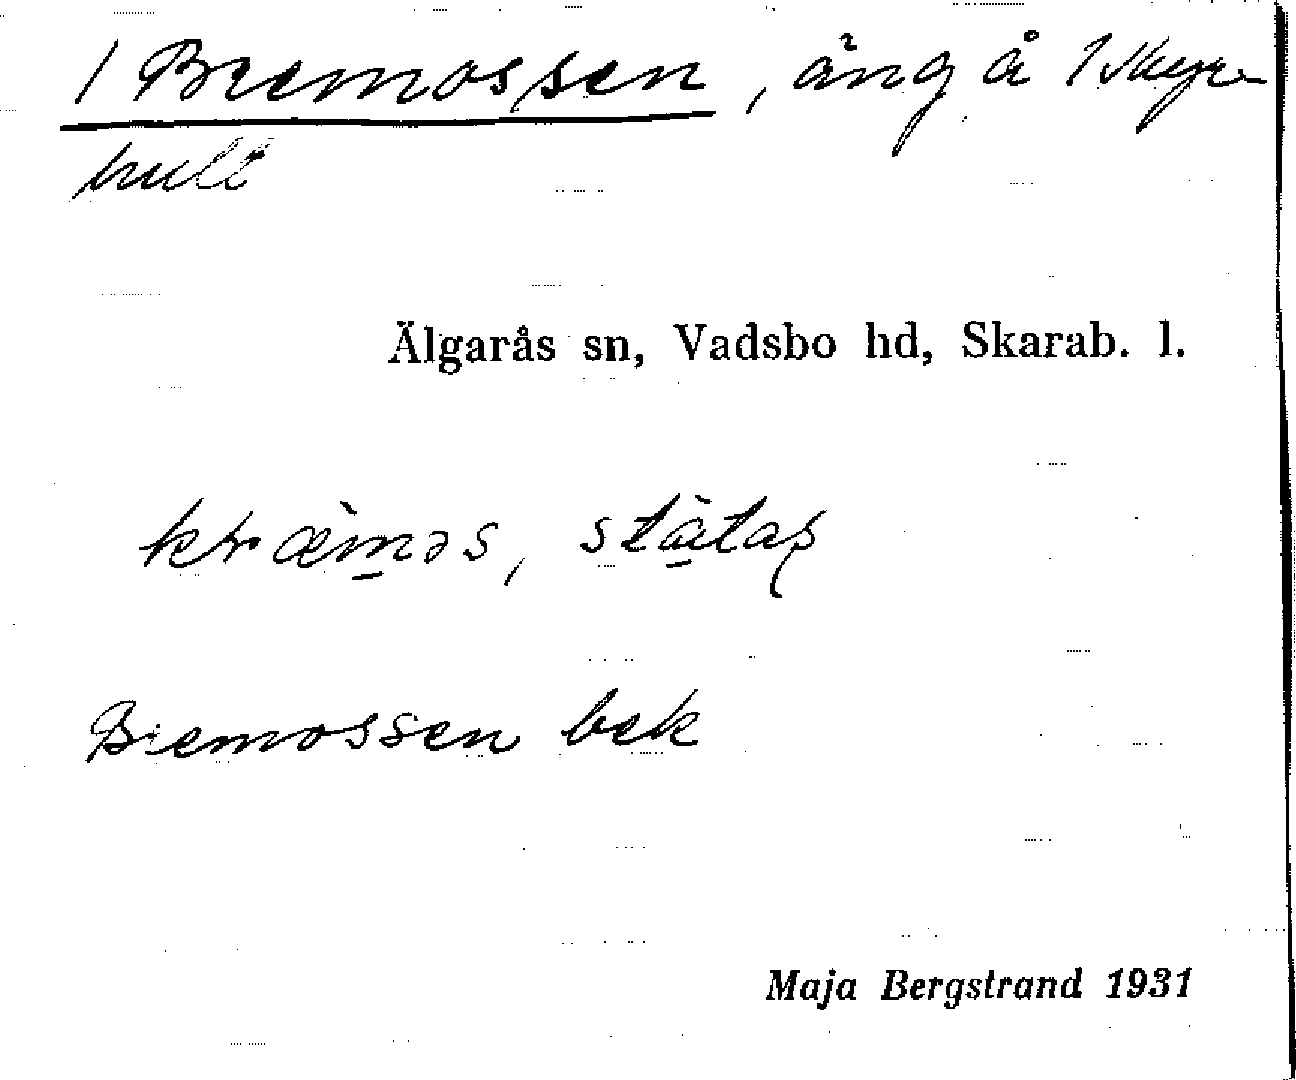 / Bremossen, äng å 1 Skyre-
hult
Älgarås sn, Vadsbo hd, Skarab. l.
Bremossen bek
Maja Bergstrand 1931